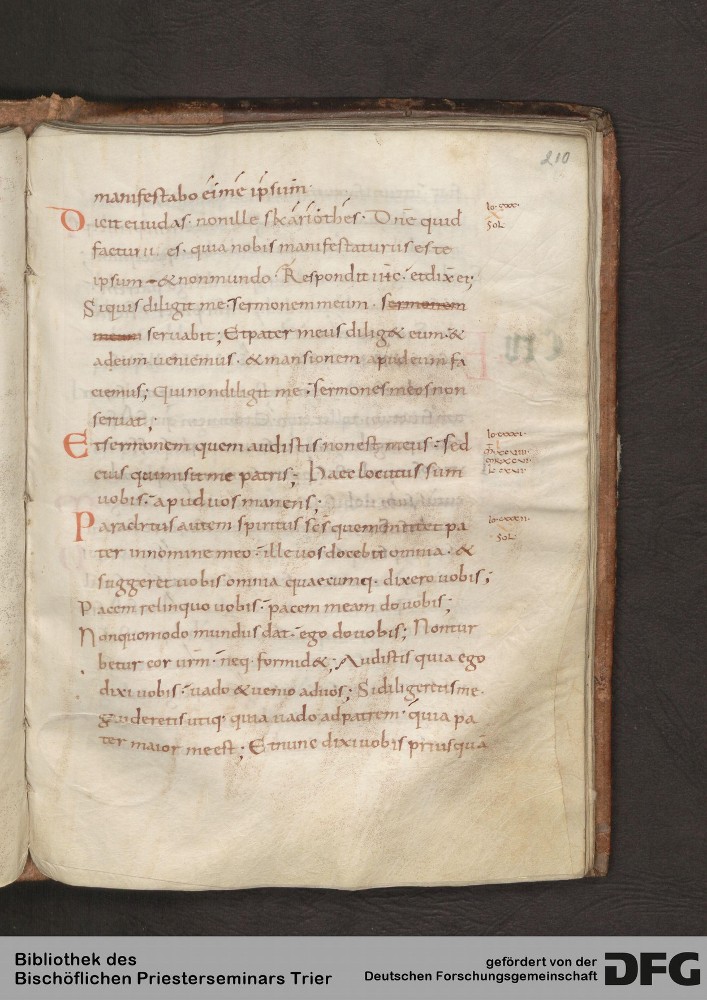 210
manifestabo ei me ipsum
Dicit ei iudas · non ille skariothes · Dñe quid
facturus es · quia nobis manifestaturus es te
ipsum · & non mundo · Respondit iħc · et dix̄ ei;
Siquis diligit me · sermonem meum · sermonem
meum servabit; Et pater meus dilig& eum · &
ad eum veniemus · & mansionem apud eum fa
ciemus; Qui non diligit me · sermones meos non
servat;
Et sermonem quem audistis non est meus · sed
eius qui misit me patris; Haec locutus sum
vobis · apud vos manens;
Paraclitus autem spiritus sc̄s quem mittet pa
ter in nomine meo · ille vos docebit omnia · &
suggeret vobis omnia quaecumq · dixero vobis;
Pacem relinquo vobis · pacem meam do vobis;
Non quomodo mundus dat · ego do vobis; Non tur
betur cor vr̄m · neq · formid&; Audistis quia ego
dixi vobis · vado & venio ad vos; Si diligeretis me ·
gauderetis utiq · quia vado ad patrem · quia pa
ter maior me est; Et nunc dixi vobis priusquā
Sol
Sol
Bibliothek des
Bischöflichen Priesterseminars Trier
gefördert von der
Deutschen Forschungsgemeinschaft
DFG